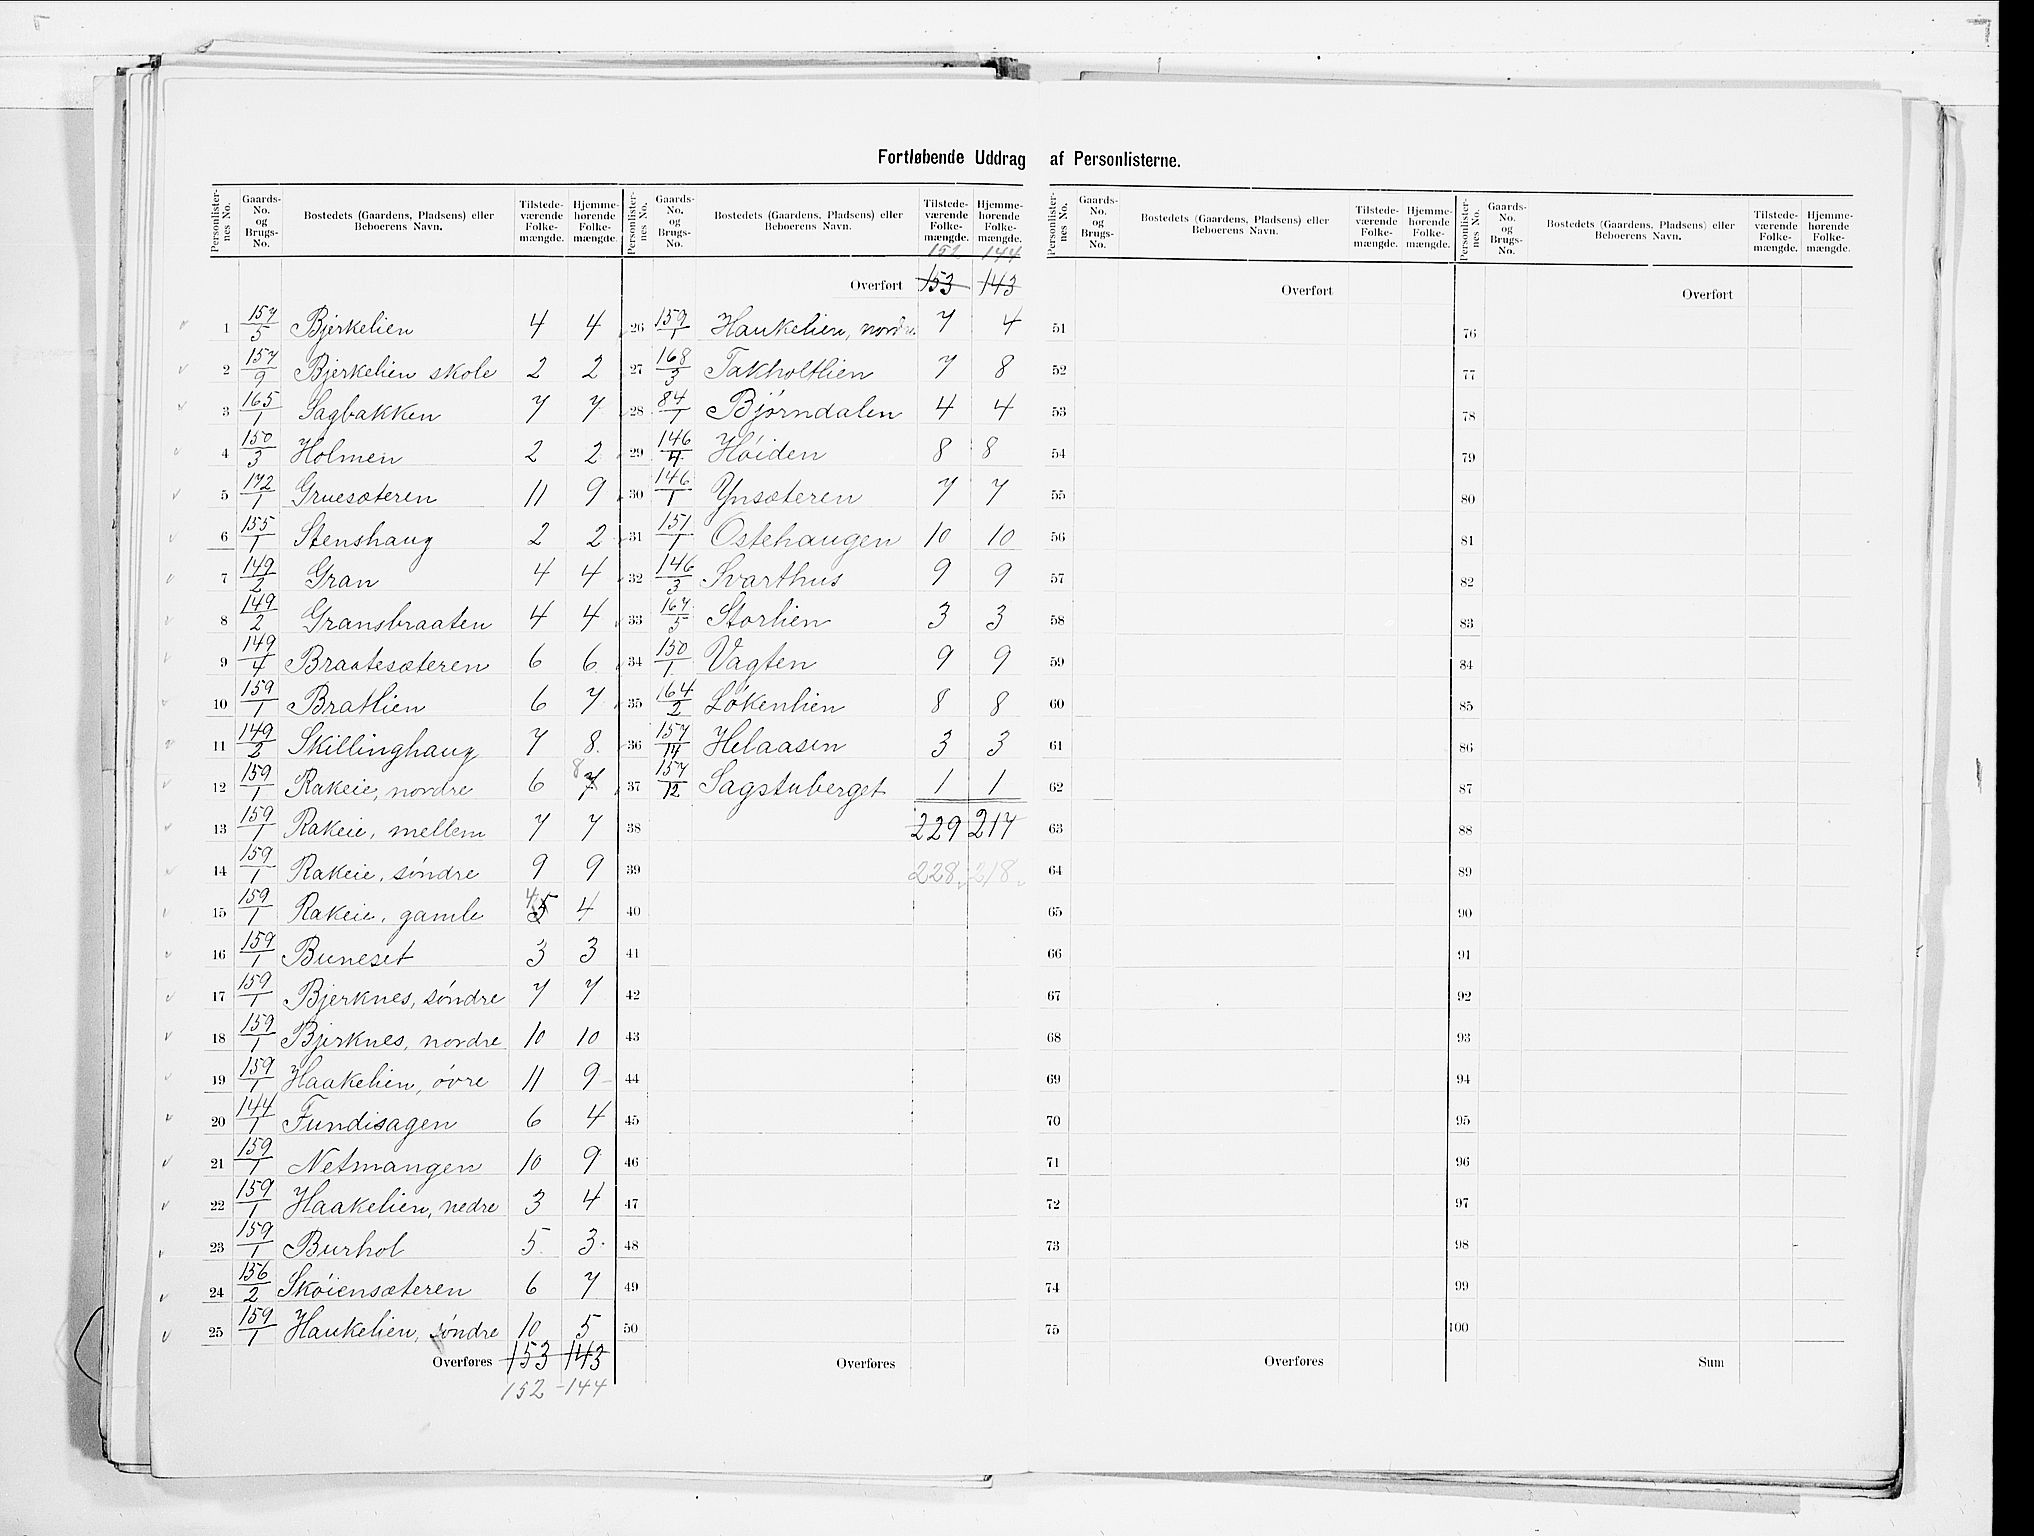 Fortløbende Uddrag af Personlisterne.
Personlisternes No. Gaards-No. og Brugs-No. Bostedets (Gaardens, Pladsens) eller Beboerens Navn. Tilstedeværende Folkemængde. Hjemmehørende Folkemængde.
1 157/5 Bjerkelien 4 4
2 157/9 Bjerkelien skole 2 2
3 165/1 Sagbakken 7 7
4 150/3 Holmen 2 2
5 172/1 Gruesæteren 11 9
6 155/1 Stenshaug 2 2
7 149/2 Gran 4 4
8 149/2 Gransbraaten 4 4
9 149/4 Braatesæteren 6 6
10 159/1 Bratlien 6 7
11 149/2 Skillinghaug 7 8
12 159/1 Rakeie, nordre 6 8 7
13 159/1 Rakeie, mellem 7 7
14 159/1 Rakeie, søndre 9 9
15 159/1 Rakeie, gamle 4 5 4
16 159/1 Buneset 3 3
17 159/1 Bjerknes, søndre 7 7
18 159/1 Bjerknes, nordre 10 10
19 159/1 Haakelien, øvre 11 9
20 144/1 Fundisagen 6 4
21 159/1 Netmangen 10 9
22 159/1 Haakelien, nedre 3 4
23 159/1 Burhol 5 3
24 156/2 Skøiensæteren 6 7
25 159/1 Haukelien, søndre 10 5
Overføres 153 143
152 - 144
Personlisternes No. Gaards-No. og Brugs-No. Bostedets (Gaardens, Pladsens) eller Beboerens Navn. Tilstedeværende Folkemængde. Hjemmehørende Folkemængde.
152 144
Overført 153 143
26 159/1 Haukelien, nordre 7 4
27 168/3 Takholtlien 7 8
28 84/1 Bjørndalen 4 4
29 146/4 Høiden 8 8
30 146/1 Ynsæteren 7 7
31 151/1 Ostehaugen 10 10
32 146/3 Svarthus 9 9
33 167/5 Storlien 3 3
34 150/1 Vagten 9 9
35 164/2 Løkenlien 8 8
36 157/14 Helaasen 3 3
37 157/12 Sagstuberget 1 1
38 229 217
39 228 218
40
41
42
43
44
45
46
47
48
49
50
Overføres
Personlisternes No. Gaards-No. og Brugs-No. Bostedets (Gaardens, Pladsens) eller Beboerens Navn. Tilstedeværende Folkemængde. Hjemmehørende Folkemængde.
Overført
51
52
53
54
55
56
57
58
59
60
61
62
63
64
65
66
67
68
69
70
71
72
73
74
75
Overføres
Personlisternes No. Gaards-No. og Brugs-No. Bostedets (Gaardens, Pladsens) eller Beboerens Navn. Tilstedeværende Folkemængde. Hjemmehørende Folkemængde.
Overført
76
77
78
79
80
81
82
83
84
85
86
87
88
89
90
91
92
93
94
95
96
97
98
99
100
Sum